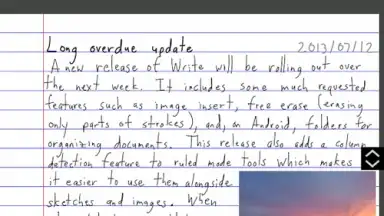 Long overdue update 2013/07/12
A new release of Write will be rolling out over
the next week. It includes some much requested
features such as image insert, free erase (erasing
only parts of strokes), and, on Android, folders for
organizing documents. This release also adds a column
detection feature to ruled mode tools which makes
it easier to use them alongside
sketches and images. When